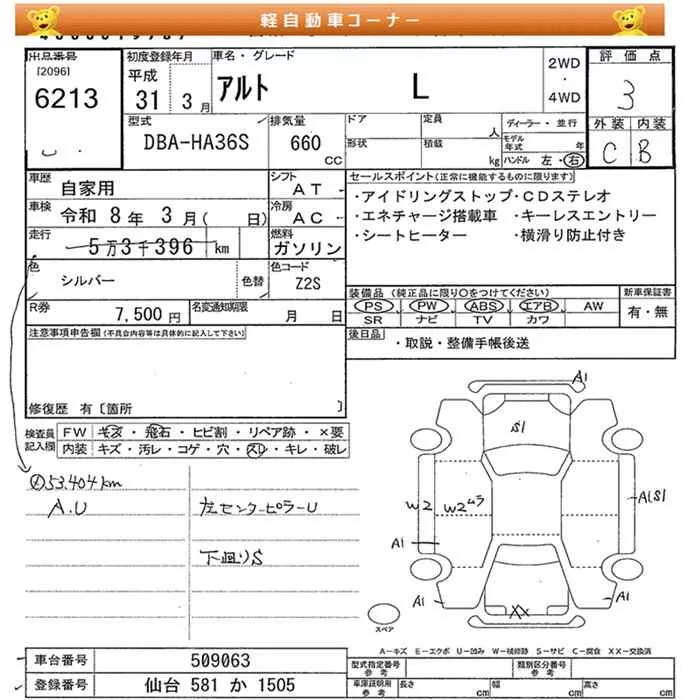 軽自動車コーナー
出品番号 初度登録年月 車名・グレード 2WD・4WD 評価点
[2096]
6213
平成31年3月
アルト L
3
型式 排気量 ドア 定員 人 ディーラー・並行 外装 内装
DBA-HA36S 660 CC 形状 積載 kg モデル年式 年 ハンドル 左・右 C B
車歴 自家用 シフト AT セールスポイント(正常に機能するものに限ります)
車検 令和 8年 3月( 日) 冷房 AC
・アイドリングストップ・CDステレオ
・エネチャージ搭載車 ・キーレスエントリー
・シートヒーター ・横滑り防止付き
走行 5万3千396 km 燃料 ガソリン
色 シルバー 色替 色コード Z2S
装備品(純正品に限り〇をつけてください) 新車保証書
PS PW ABS エアB AW 有・無
SR ナビ TV カワ
R券 7,500円 名変通知期限 月 日
注意事項申告欄(不具合内容等は具体的に記入して下さい)
後日品 ・取説・整備手帳後送
修復歴 有〔箇所 〕
検査員記入欄 FW キズ・飛石・ヒビ割・リペア跡・×要
内装 キズ・汚レ・コゲ・穴・スレ・キレ・破レ
53.404km
A.U 左センターピラーU
下廻りS
A1
S1
W2 W2ムラ
A1S1
A1
A1
A1
XX
スペア
A-キズ E-エクボ U-凹み W-補修跡 S-サビ C-腐食 XX-交換済
車台番号 509063 型式指定番号 参考 類別区分番号 参考
登録番号 仙台 581 か 1505 車庫証明用 参考 長さ cm 幅 cm 高さ cm